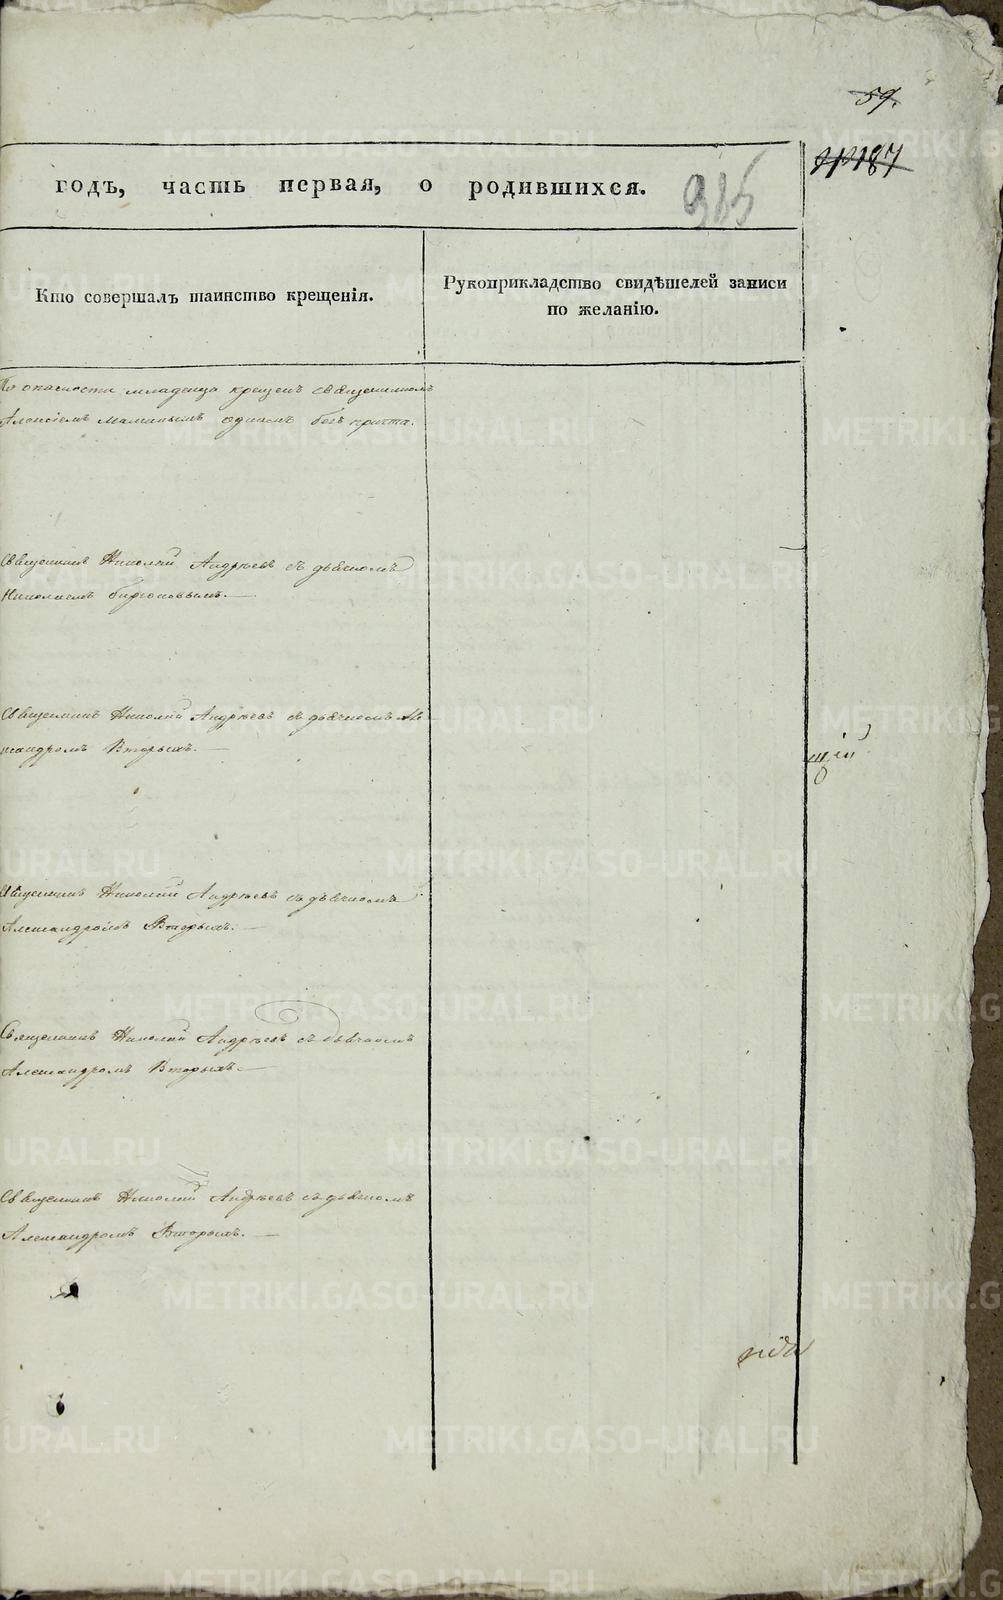 59.
187
годъ, часть первая, о родившихся.
315
Кто совершалъ таинство крещенія.
Рукоприкладство свидѣтелей записи
по желанію.
По опасности младенца крещенъ священникомъ
Алексіемъ Маминымъ однимъ безъ причта.
Священникъ Николай Андреевъ съ дьячкомъ
Николаемъ Бирюковымъ.
Священникъ Николай Андреевъ съ дьячкомъ Але-
ксандромъ Вторыхъ.
щій
Священникъ Николай Андреевъ съ дьячкомъ
Александромъ Вторыхъ.
Священникъ Николай Андреевъ съ дьячкомъ
Александромъ Вторыхъ.
Священникъ Николай Андреевъ съ дьячкомъ
Александромъ Вторымъ.
METRIKI.GASO-URAL.RU